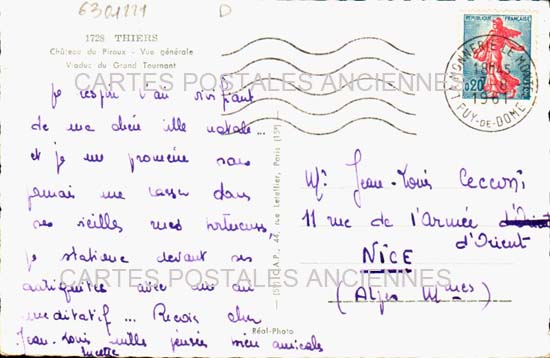 6301111
D
1728 THIERS
Château du Piroux - Vue générale
Viaduc du Grand Tournant
REPUBLIQUE FRANÇAISE
0,20
LA MONNERIE LE MONTEL
18H45
1961
PUY-DE-DOME
CARTES POSTALES ANCIENNES
Je respire l'air vivifiant
de ma chère ville natale...
et je me promène sans
jamais me lasser dans
ses vieilles rues tortueuses,
je stationne devant ses
antiquités avec un air
méditatif... Reçois cher
Jean-Louis mille pensées bien amicales
Lucette
Mr Jean-Louis Cecconi
11 rue de l'Armée d'Orient
d'Orient
NICE
(Alpes Mmes)
CARTES POSTALES ANCIENNES
C.A.P., 44, rue Letellier, Paris (15e)
Réal-Photo